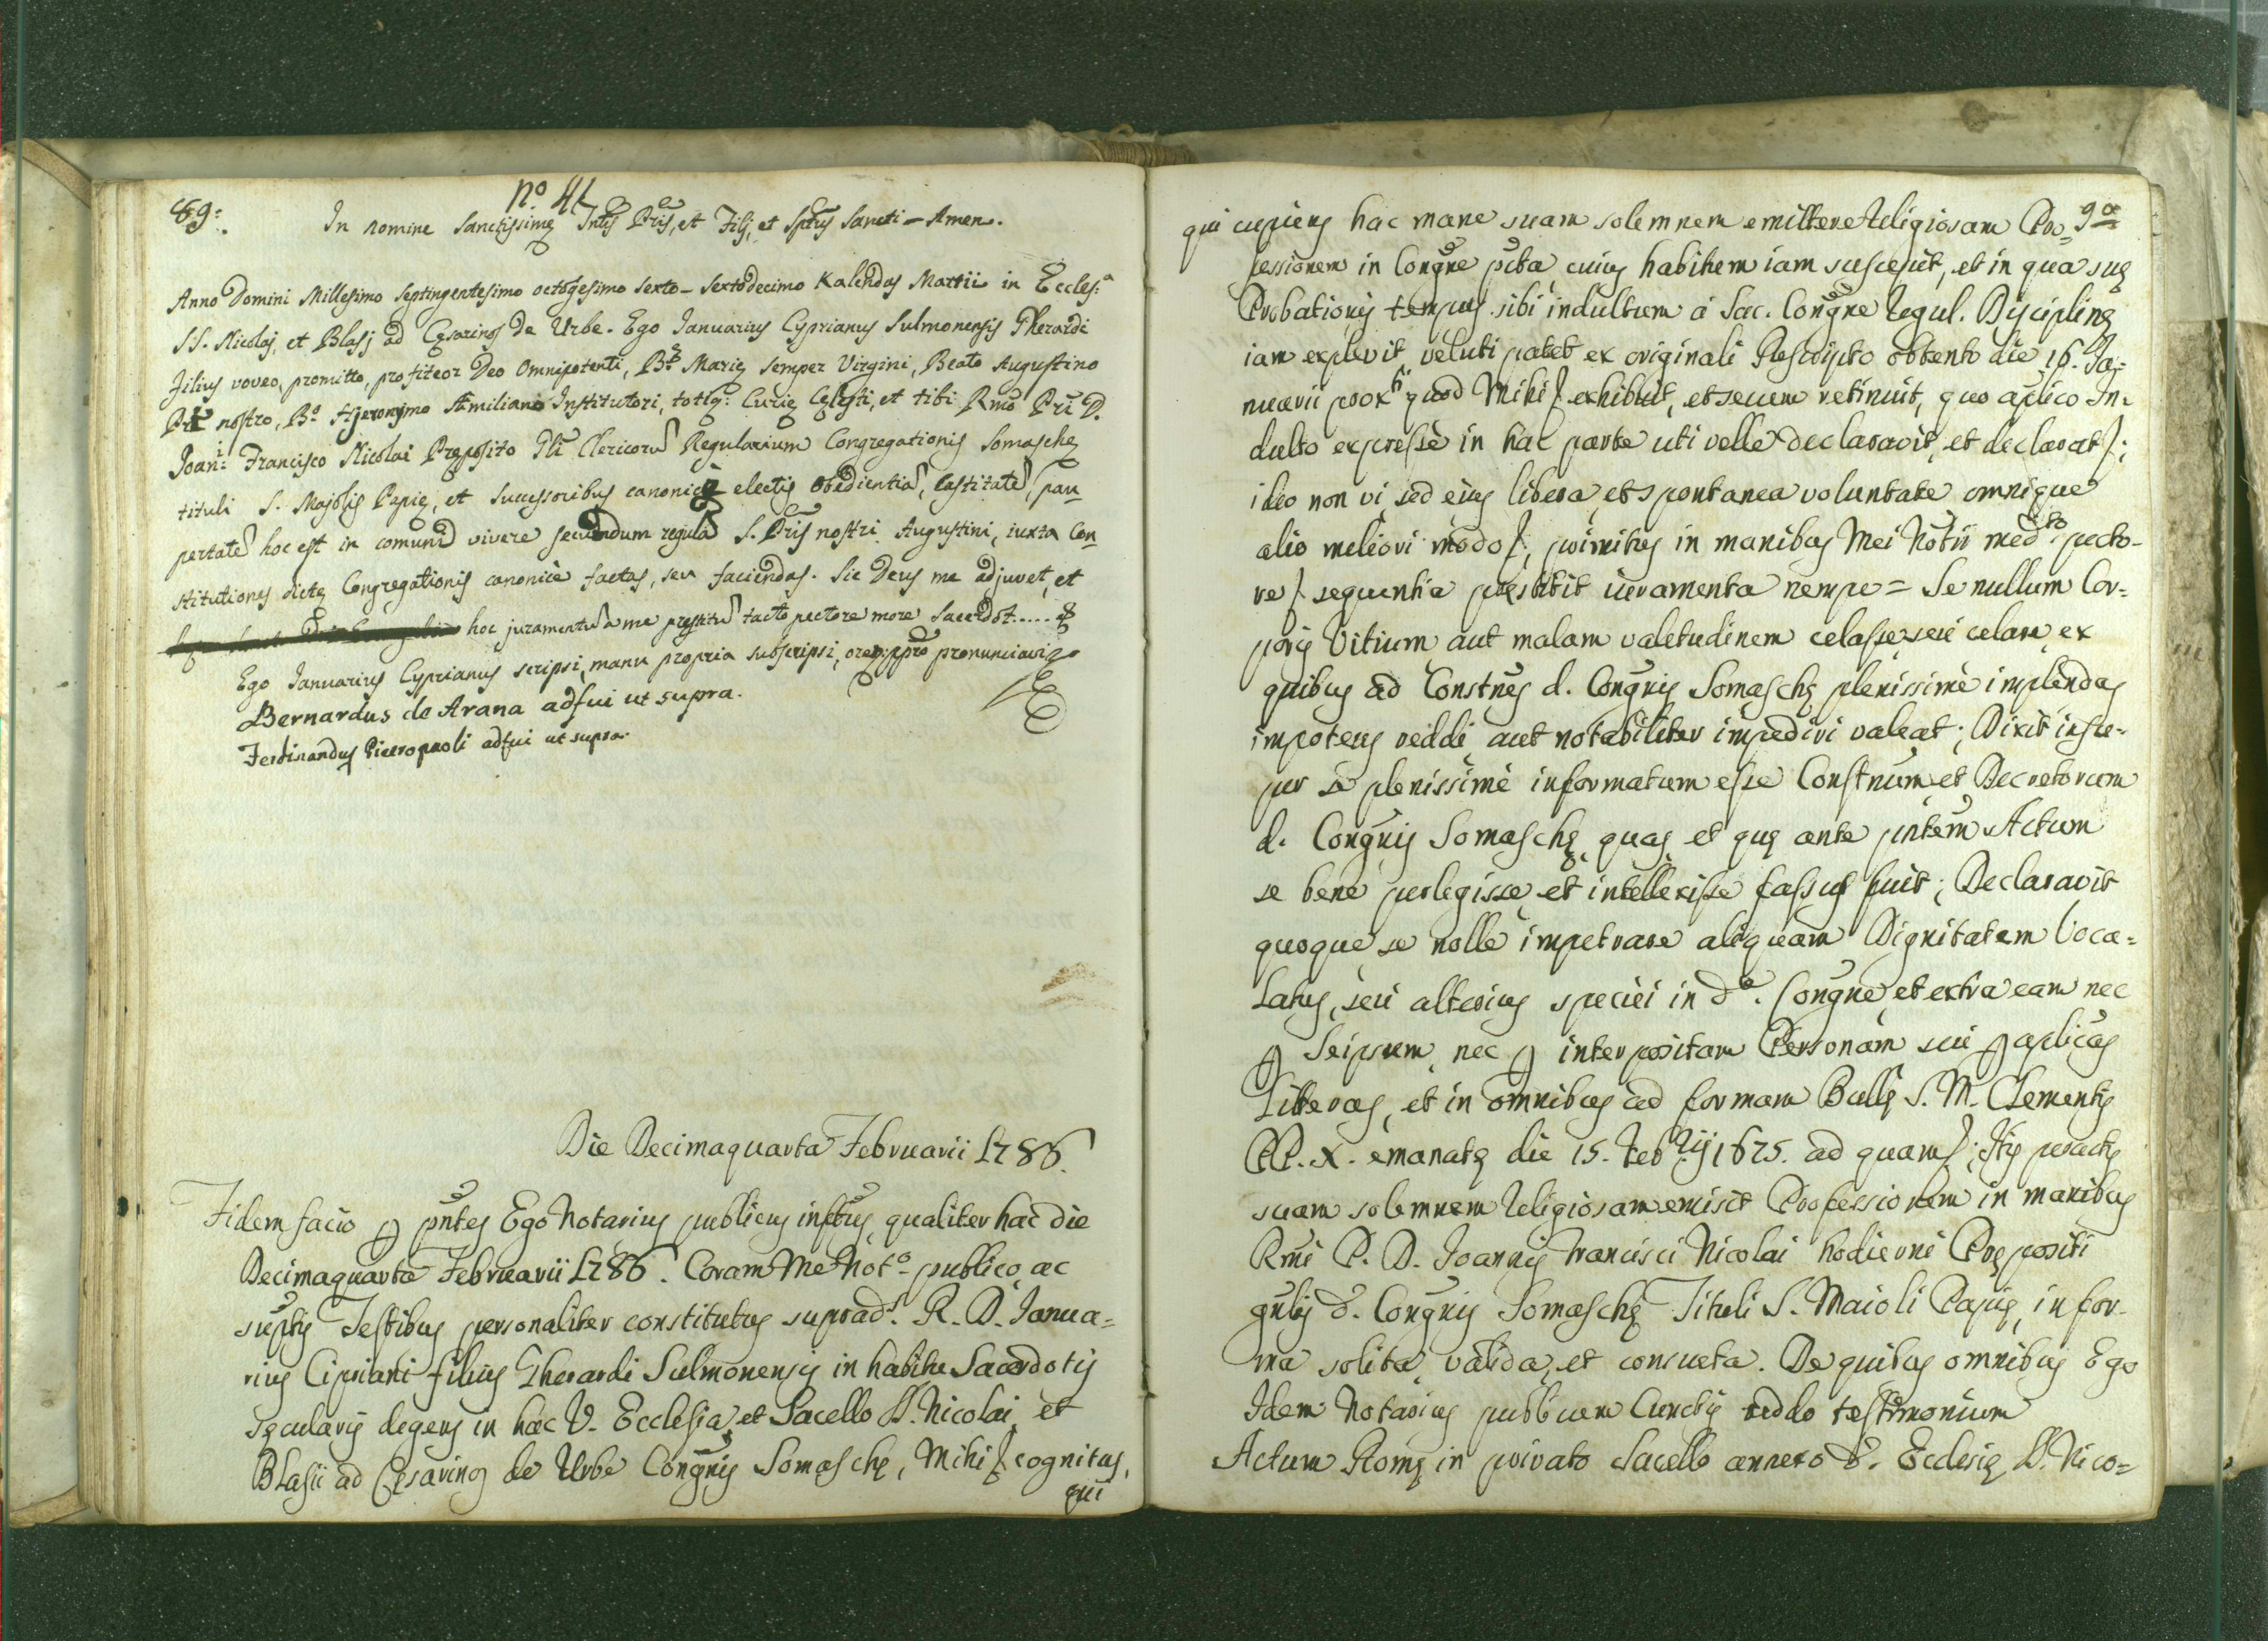 89:
nº 41
In nomine Sanctissimę Tntis Pris, et Filij, et Sptus Sancti - Amen.
Anno Domini Millesimo Septingentesimo octogesimo sexto - Sextodecimo Kalendas Martii in Eccles:ª
SS. Nicolaj, et Blasj ad Cęsarinos de Urbe. Ego Januarius Cyprianus Sulmonensis Gherardi
Filius voveo, promitto, profiteor Deo Omnipotenti, Bę Marię semper Virgini, Beato Augustino
Pri nostro, Bº Hjeronymo Æmiliano Institutori, totiq: Curię Cęlesti, et tibi Rmo Pri D.
Joan: Francisco Nicolai Pręposito Gli Clericorũ Regularium Congregationis Somaschę
tituli S. Majolis Papię, et successoribus canonicè electis obedientiã, castitatẽ, pau
pertatẽ hoc est in comuni vivere secundum regulã S. Pris nostri Augustini, iuxta Con
stitutiones dictę Congregationis canonicè factas, seu faciendas. Sic Deus me adjuvet, et
hoc juramentũ a me pręstitũ tacto pectore more Sacerdot.....
Ego Januarius Cyprianus scripsi, manu propria subscripsi, oreq: pprio pronunciavi
Bernardus de Arana adfui ut supra.
Ferdinandus Pieropaoli adfui ut supra.
Die Decimaquarta Februarii 1786.
Fidem facio p pntes Ego Notarius publicus inftus, qualiter hac die
Decimaquarta Februarii 1786. Coram Me Notº publico, ac
suptis Testibus personaliter constitutus suprad. R. D. Janua=
rius Cipriani filius Gherardi Sulmonensis in habitu Sacerdotis
sęcularis degens in hac V. Ecclesia, et Sacello SS. Nicolai, et
Blasii ad Cęsarinos de Urbe Congnis Somaschę, Mihi cognitus,
qui
9ª
qui cupiens hac mane suam solemnem emittere Religiosam Pro=
fessionem in Congne pcta cuius habitum iam suscepit, et in qua suę
Probationis tempus sibi indultum à Sac. Congne Regul. Disciplinę
iam explevit, veluti patet ex originali Rescripto obtento die 16. Ja=
nuarii prox: quod Mihi exhibuit, et secum retinuit, quo aplico In=
dulto expressè in hac parte uti velle declaravit, et declarat;
ideo non vi, sed eius libera, et spontanea voluntate omnique
alio meliori modo, primitus in manibus Mei Notii medto pecto-
re sequentia pręstitit iuramenta nempe = Se nullum Cor-
poris Vitium aut malam valetudinem celasse, seu celare, ex
quibus ad Constnes d. Congnis Somaschę plenissimè implendas
impotens reddi, aut notabiliter impediri valeat; Dixit insu-
per se plenissimè informatum esse Constnum, et Decretorum
d. Congnis Somaschę, quas, et quę ante pntem Actum
se bene perlegisse, et intellexisse fassus fuit; Declaravit
quoque se nolle impetrare aliquam Dignitatem Voca=
latus, seu alterius speciei in dª. Congne, et extra eam nec
p Seipsum, nec p interpositam Personam seu p aplicas
Litteras, et in omnibus ad formam Bullę S. M. Clementis
PP. X. emanatę die 15. Febrij 1675. ad quam; His peractis
suam solemnem Religiosam emisit Professionem in manibus
Rmi P. D. Joannis Francisci Nicolai hodierni Prępositi
gnlis d. Congnis Somaschę Tituli S. Maioli Papię, in for-
ma solita, valida, et consueta. De quibus omnibus Ego
Idem Notarius publicum Cunctis reddo testimonium
Actum Romę in privato Sacello annexo d. Ecclesię SS. Nico=